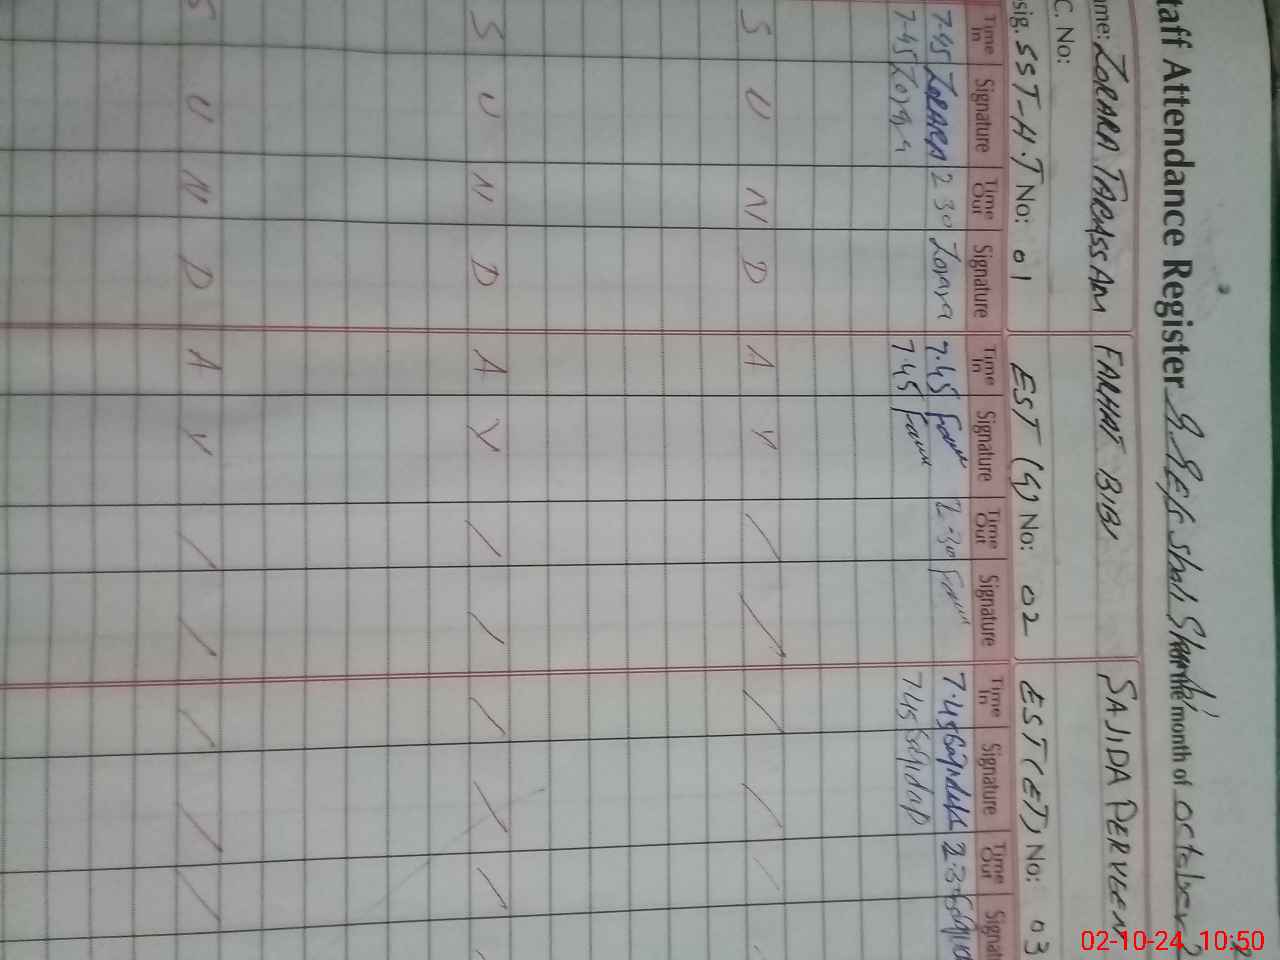 Staff Attendance Register GGES Shah the month of October 2
Name: ZORARA TABASSAM FARHAT BIBI SAJIDA PERVEEN
C. No:
Desig. SST-H.T No: 01 EST (G) No: 02 EST (ET) No: 03
Time In Signature Time Out Signature Time In Signature Time Out Signature Time In Signature Time Out Signat
7-45 ZORARA 2 30 Zorara 7.45 2-30 7.45 2.30
7-45 Zorara 7.45 7.45
S U N D A Y
S U N D A Y
S U N D A Y
02-10-24 10:50